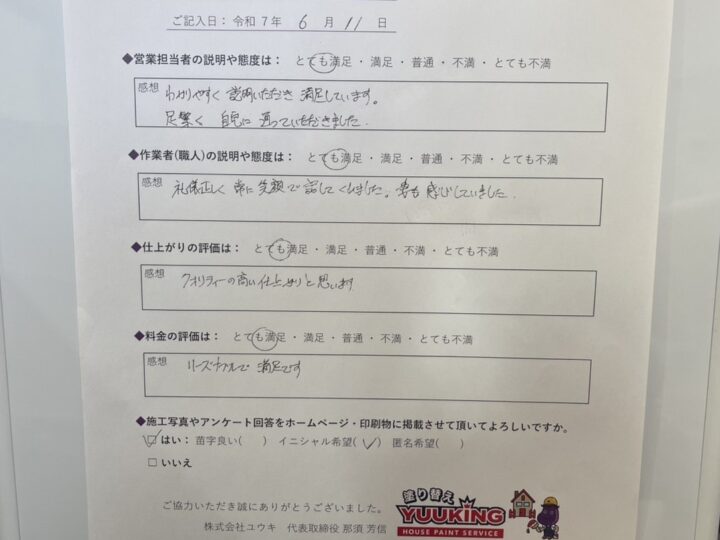 ご記入日：令和7年 6 月 11 日
◆営業担当者の説明や態度は： とても満足 ・ 満足 ・ 普通 ・ 不満 ・ とても不満
感想 わかりやすく 説明いただき 満足しています。
足繁く 自宅に 通っていただきました。
◆作業者(職人)の説明や態度は： とても満足 ・ 満足 ・ 普通 ・ 不満 ・ とても不満
感想 礼儀正しく 常に笑顔で 話してくれました。妻も 感心していました。
◆仕上がりの評価は： とても満足 ・ 満足 ・ 普通 ・ 不満 ・ とても不満
感想 クオリティーの高い仕上がりと思います
◆料金の評価は： とても満足 ・ 満足 ・ 普通 ・ 不満 ・ とても不満
感想 リーズナブルで 満足です
◆施工写真やアンケート回答をホームページ・印刷物に掲載させて頂いてよろしいですか。
☑はい： 苗字良い( ) イニシャル希望(✓) 匿名希望( )
□いいえ
ご協力いただき誠にありがとうございました。
株式会社ユウキ 代表取締役 那須 芳信
塗り替え
YUUKING
HOUSE PAINT SERVICE